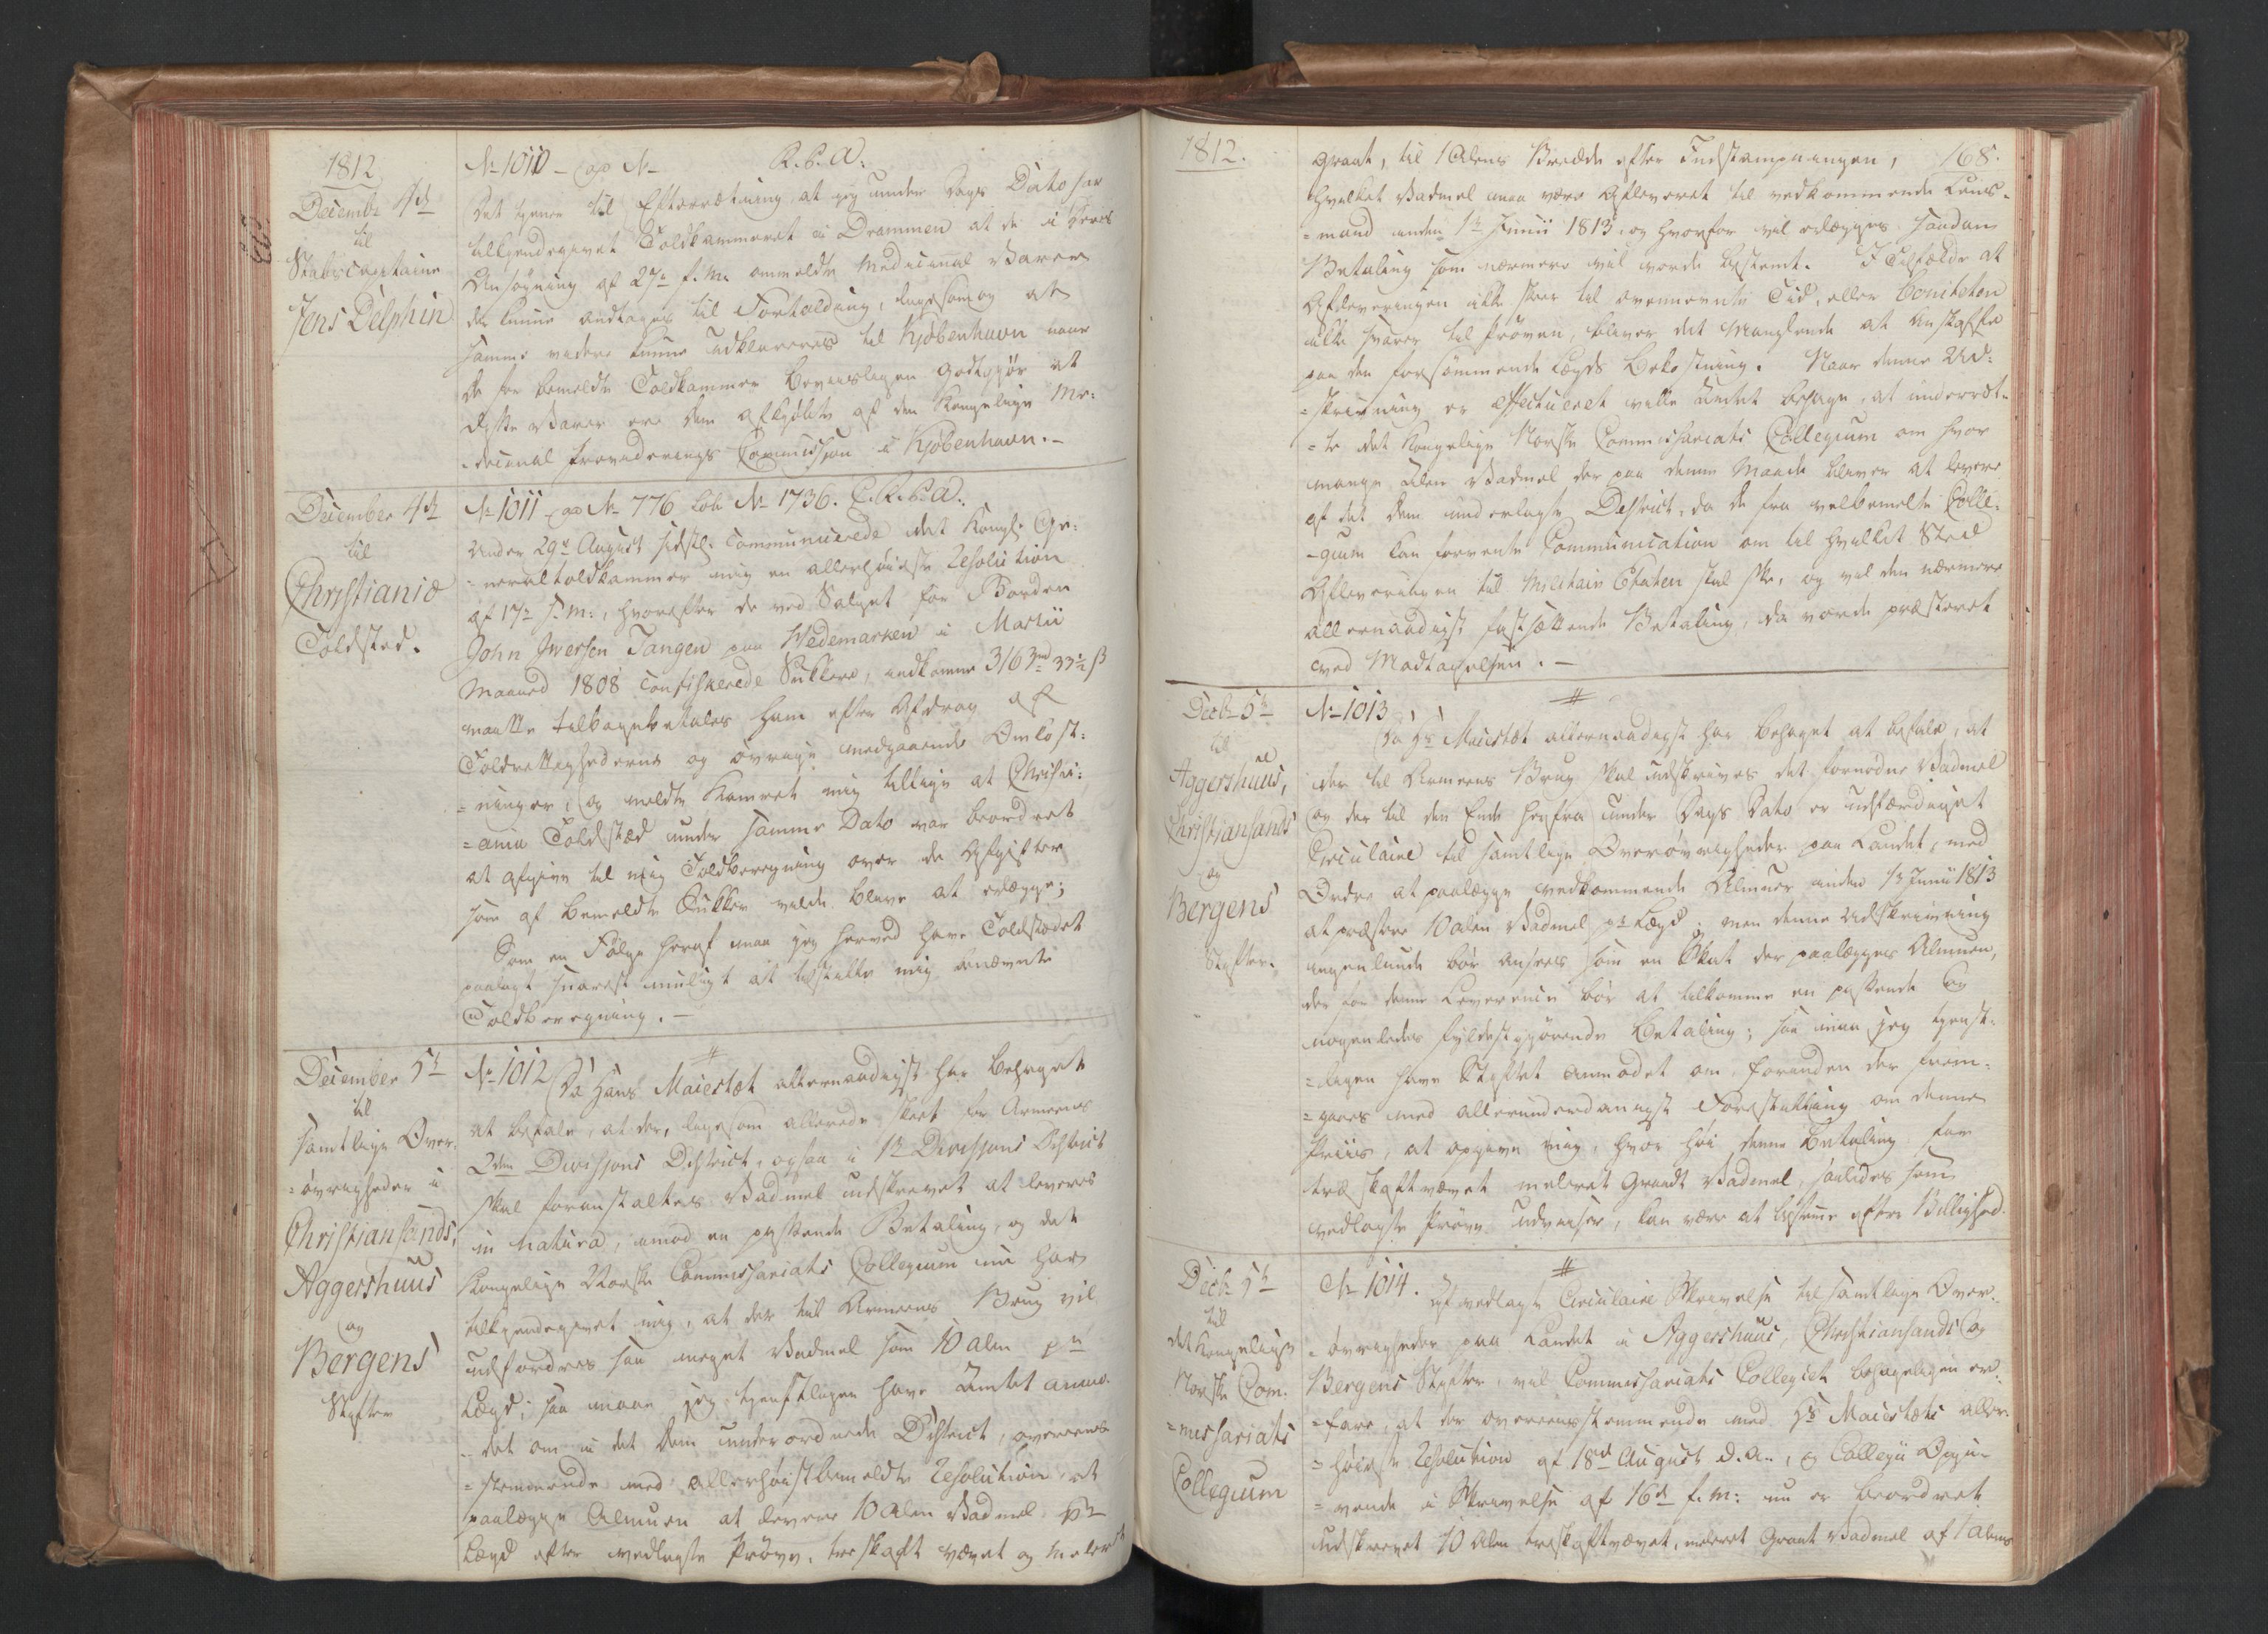 1812
Decembr 4d
til
Stabscapitaine
Jens Delphin
No 1010 - ad No - R. P. A:
Det tjener til Efterretning at jeg under Dags Dato har
tilkjendegivet Toldkammeret i Drammen at de i Deres
Ansøgning af 27de f. M. anmeldte Medicinal Varer
der kunne andtages til Fortolding, ligesom og at
samme videre kunne udklareres til Kjøbenhavn naar
De for bemeldte Toldkammer beviisligen godtgjør at
disse Varer ere Dem afkjøbte af den Kongelige Me:
dicinal Provideerings Commission i Kjøbenhavn. -
December 4d
til
Christiania
Toldsted.
No 1011 ad No 776 Lob No 1736. C. R. P. A:
Under 29de August sidstl. communicerede det Kongl. Ge:
=neraltoldkammer mig en allerhøieste Resolution
af 17de s. M:, hvorefter de ved Salget for Bonden
John Iwersen Tangen paa Hedemarken i Martii
Maaned 1808 confiskerede Sukkere, indkomne 316 rd 33½ ß
maatte tilbagebetales ham efter Afdrag af
Toldrettighederne og øvrige medgaaende Omkost:
=ninger; og meldte Kamret mig tillige at Christi:
=ania Toldsted under samme Dato var beordret
at afgive til mig Toldberegning over de Afgifter
som af bemeldte Sukker vilde blive at erlægge;
Som en Følge heraf maa jeg herved have Toldstedet
paalagt snarest muligt at tilstille mig ernævnte
Toldberegning. -
December 5te
til
samtlige Over:
=øvrigheder i
Christiansands,
Aggershuus
og
Bergens
Stifter
No 1012
Da Hans Maiestæt allernaadigst har behaget
at befale, at der, ligesom allerede skeet for Armeens
2den Divisjons District, ogsaa i 1te Divisjons District
skal foranstaltes Vadmel udskrevet at leveres
in Natura, imod en passende Betaling, og det
Kongelige Norske Commissariats Collegium nu har
tilkjendegivet mig, at der til Armeens Brug vil
udfordres saa meget Vadmel som 10 Alen pr
Lægd; saa maa jeg tjenstligen have Amtet anmo:
=det om i det Dem underordnede District, overeens
=stemmende med allerhøistbemeldte Resolution, at
paalægge Almuen at levere 10 Alen Vadmel pr
Lægd efter vedlagte Prøve, treskaft vævet og meleret
1812.
168.
Graat, til 1 Alens Bredde efter Indstampningen,
hvilket Vadmel maa være afleveret til vedkommende Lens-
=mand inden 1te Junii 1813, og hvorfor vil erlægges saadan
Betaling som nærmere vil vorde bestemt. I Tilfælde at
Afleveringen ikke skeer til ovennevnte Tid, eller Boniteten
ikke svarer til Prøven, bliver det Manglende at anskaffe
paa den forsømmende Lægds Bekostning. Naar denne Ud:
=skrivning er effectueret ville Amtet behage, at underret:
=te det Kongelige Norske Commissariats Collegium om hvor
mange Alen Vadmel der paa denne Maade bliver at levere
af det Dem underlagte District, da De fra velbemelte Colle:
=gium kan forvente Communication om til hvilket Sted
Afleveringen til Militair Etaten skal skee, og vil den nærmere
allernaadigst fastsættende Betaling, da vorde præsteret
ved Modtagelsen. -
Decbr 5te
til
Aggershuus,
Christiansands
og
Bergens
Stifter.
No 1013
Da Hs Maiestæt allernaadigst har behaget at befale, at
der til Armeens Brug skal udskrives det fornødne Vadmel
og der til den Ende herfra under Dags Dato er udfærdiget
Circulaire til samtlige Overøvrigheder paa Landet, med
Ordre at paalægge vedkommende Almuer inden 1te Junii 1813
at præstere 10 Alen Vadmel pr Lægd; men denne Udskrivning
ingenlunde bør ansees som en Skat der paalægges Almuen,
der for denne Leverence bør at tilkomme en passende og
nogenledes fyldestgjørende Betaling; saa maa jeg tjenst:
=ligen have Stiftet anmodet om, forinden der frem:
=gaaes med allerunderdanigst Forestilling om denne
Priis, at opgive mig, hvor høi denne Betaling for
treskaftvævet meleret Graat Vadmel, saaledes som
vedlagte Prøve udviser, kan være at bestemme efter Billighed.
Decbr 5te
til
det Kongelige
Norske Com:
=missariats
Collegium
No 1014.
Af vedlagte Circulaire Skrivelse til samtlige Over:
=øvrigheder paa Landet i Aggershuus, Christiansands og
Bergens Stifter, vil Commissariats Collegiet behageligen er:
=fare, at der overeensstemmende med Hs Maiestæts aller:
=høieste Resolution af 18d August d. A., og Collegii Opgi-
=vende i Skrivelse af 16d f. M: nu er beordret
udskrevet 10 Alen treskaftvævet, meleret Graat Vadmel af 1 Alens